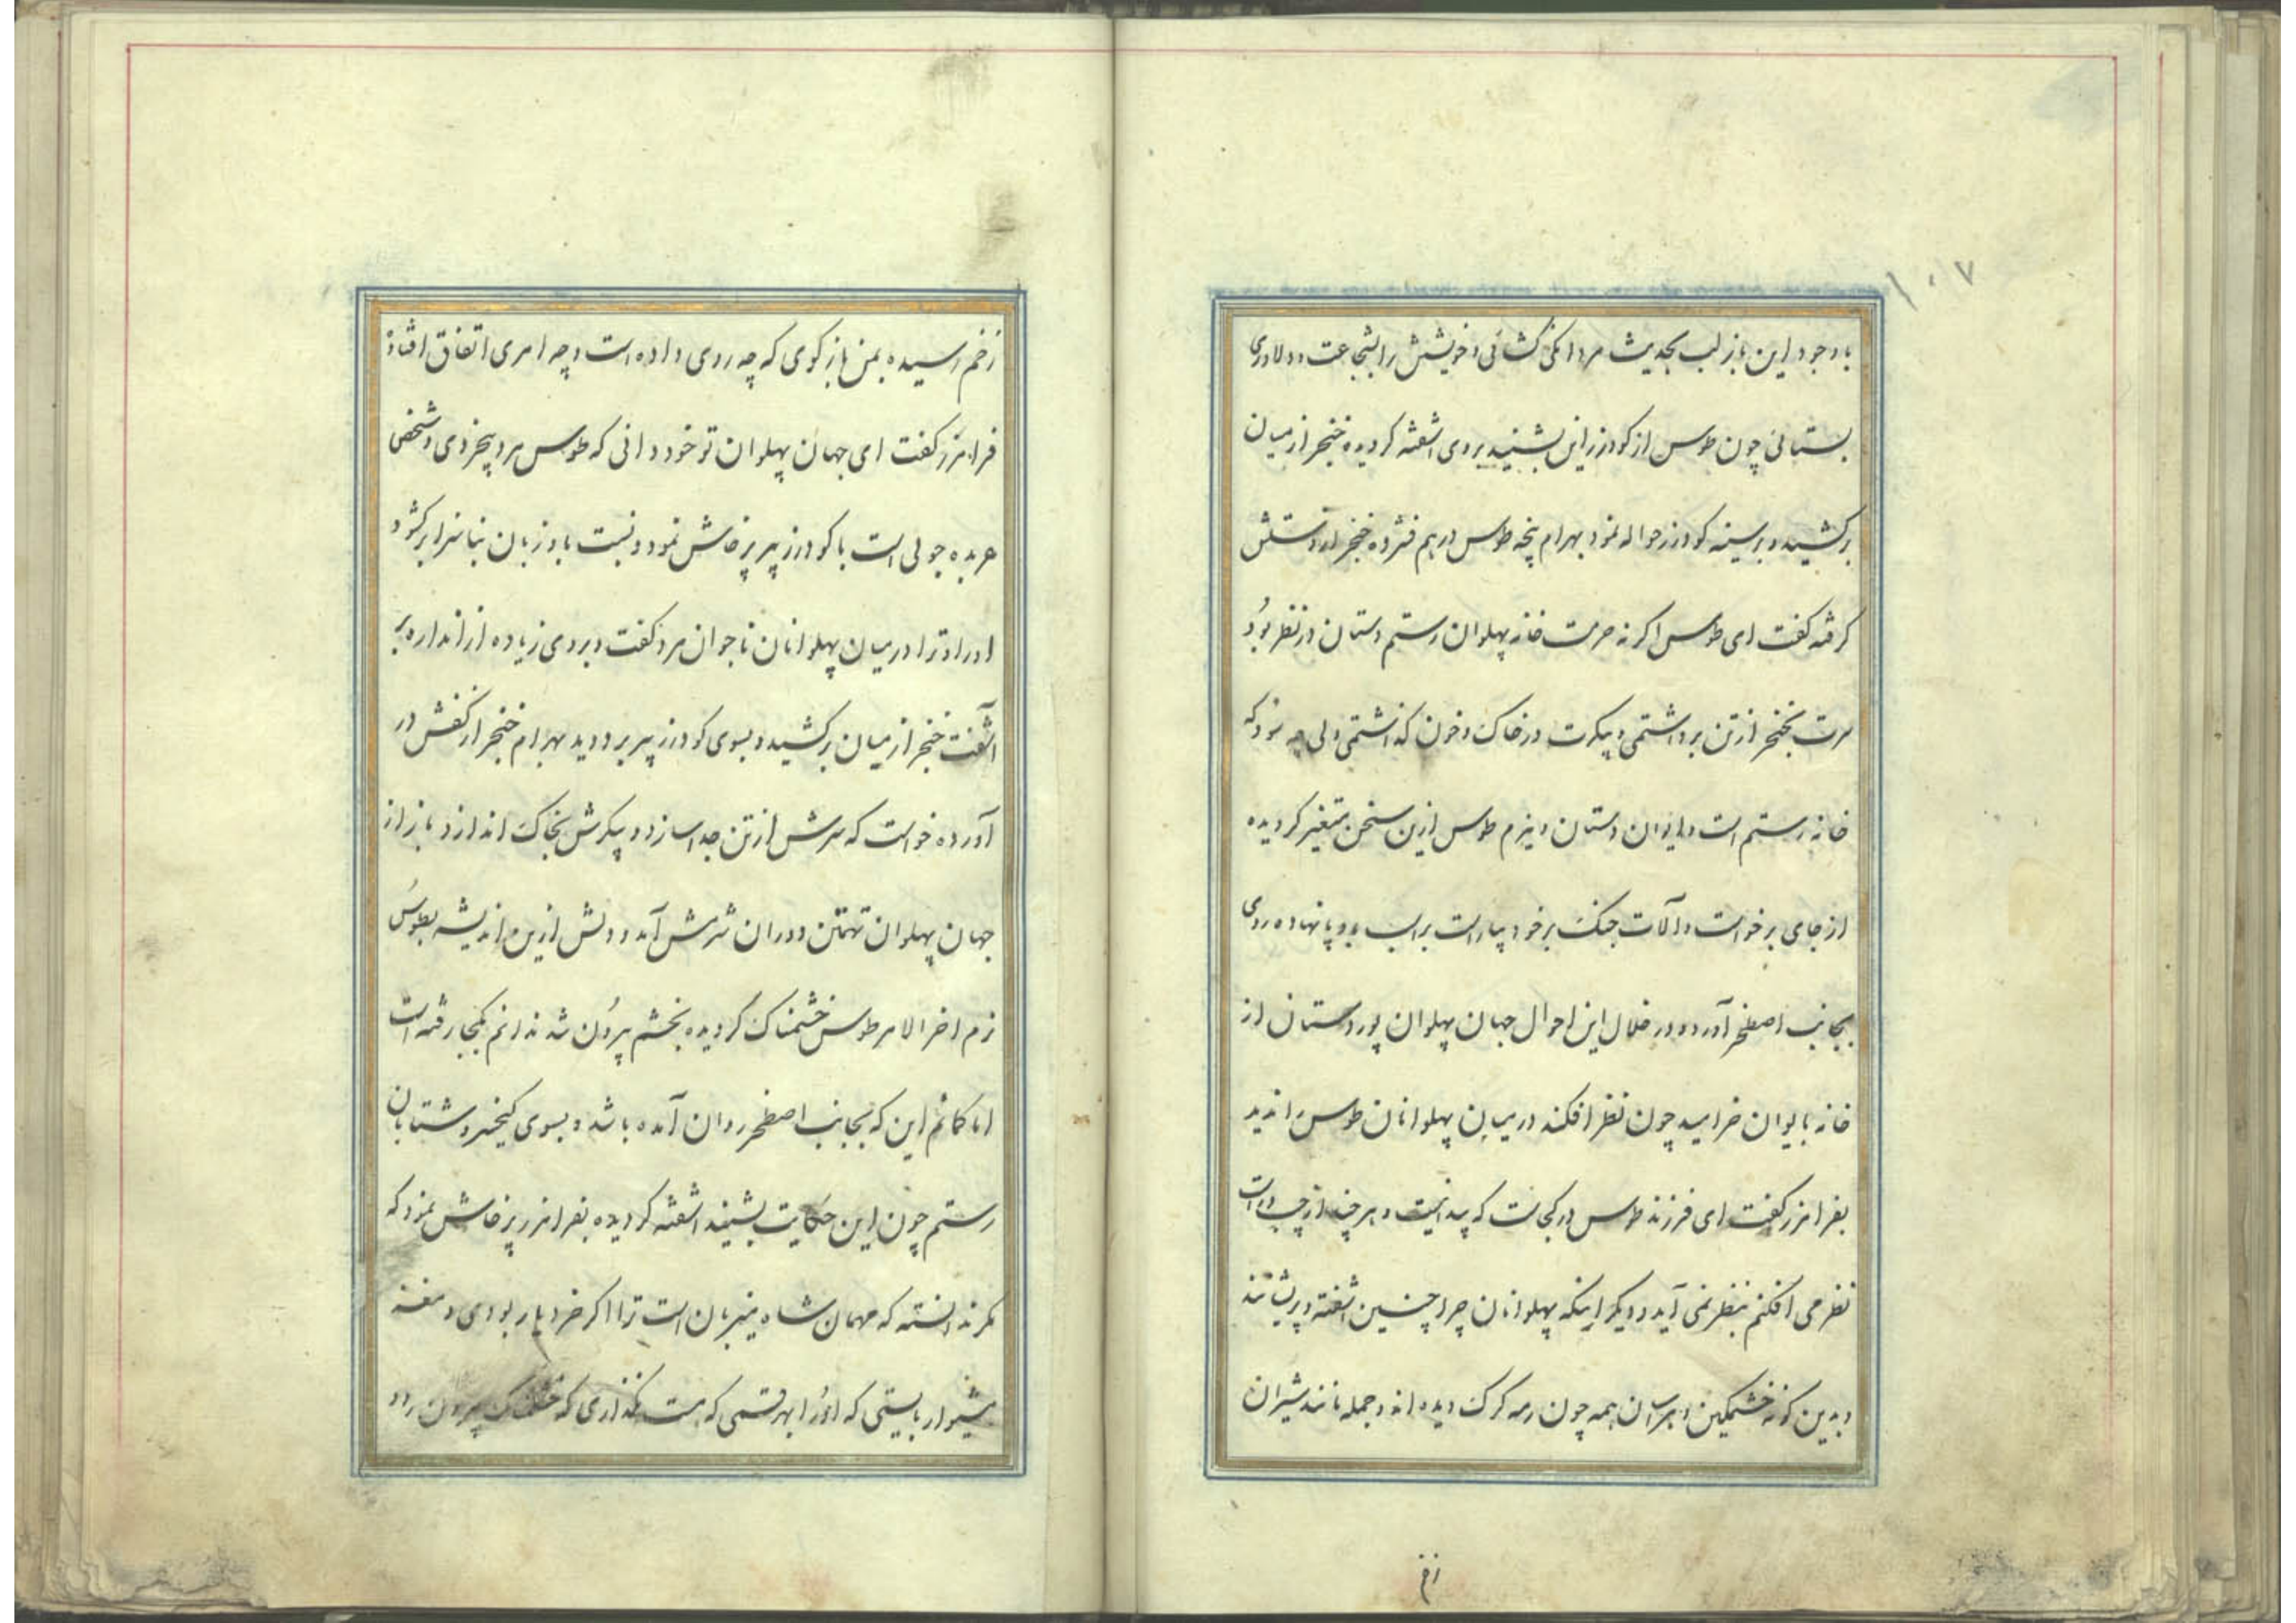 ۱۰۷
باوجود این باز لب بحدیث مردانکی کشائی و خویشتن را بشجاعت و دلاوری
بستائی چون طوس از کودرز این بشنید بروی اشفته کردیده خنجر از میان
برکشید و بر سینه کودرز حواله نمود بهرام پنجه طوس در هم فشرده خنجر از دستش
کرفته کفت ای طوس اکر نه حرمت خانه پهلوان رستم دستان در نظر بود
سرت بخنجر از تن برداشتمی و پیکرت در خاک و خون کذاشتمی ولی چه سود که
خانه رستم است و ایوان دستان و بزم طوس ازین سخن متغیر کردیده
از جای برخواست و آلات جنک بر خود بیاراست براسب پا نهاده روی
بجانب اصطخر آورد و در خلال این احوال جهان پهلوان پور دستان از
خانه بایوان خرامید چون نظر افکند در میان پهلوانان طوس را ندید
بفرامرز کفت ای فرزند طوس در کجاست که پیدا نیست و هر چند از چپ و راست
نظر می افکنم بنظر نمی آید و دیکر اینکه پهلوانان چرا چنین اشفته و پریشانند
و بدین کونه خشمکین و هراسان همه چون رمه کرک دیده اند و جمله مانند شیران
زخم
زخم رسیده بمن باز کوی که چه روی داده است و چه امری اتفاق افتاده
فرامرز کفت ای جهان پهلوان تو خود دانی که طوس مرد بیخردی و شخص
عربده جوئی است با کودرز پیر پرخاش نمود و نسبت باو زبان بناسزا برکشود
او را در میان پهلوانان ناجوان مرد کفت و بروی زیاده از اندازه بر
آشفت خنجر از میان برکشید و بسوی کودرز پیر بر دوید بهرام خنجر از کفش در
آورده خواست که سرش از تن جدا سازد و پیکرش بخاک اندازد باز از
جهان پهلوان تهمتن دوران شرمش آمد و دلش ازین اندیشه بطوس
نرم اخر الامر طوس خشمناک کردیده بخشم بیرون شد ندانم بکجا رفته است
اما کمانم این که بجانب اصطخر روان آمده باشد و بسوی کیخسرو شتابان
رستم چون این حکایت بشنید اشفته کردیده بفرامرز پرخاش نمود که
مکر ندانسته که مهمان شاه میزبان است ترا اکر خرد یار بودی و مغز
هشیوار بایستی که او را بهر قسمی که هست نکذاری که خشمناک بیرون رود